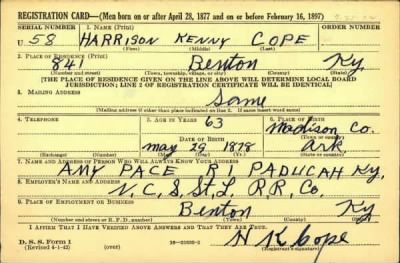 REGISTRATION CARD—(Men born on or after April 28, 1877 and on or before February 16, 1897)
SERIAL NUMBER 1. NAME (Print) ORDER NUMBER
U. 58 HARRISON KENNY COPE
(First) (Middle) (Last)
2. PLACE OF RESIDENCE (Print)
841 Benton Ky.
(Number and street) (Town, township, village, or city) (County) (State)
[THE PLACE OF RESIDENCE GIVEN ON THE LINE ABOVE WILL DETERMINE LOCAL BOARD
JURISDICTION; LINE 2 OF REGISTRATION CERTIFICATE WILL BE IDENTICAL]
3. MAILING ADDRESS
Same
[Mailing address if other than place indicated on line 2. If same insert word same]
4. TELEPHONE 5. AGE IN YEARS 6. PLACE OF BIRTH
63 Madison Co.
DATE OF BIRTH (Town or county)
May 29 1878 Ark
(Exchange) (Number) (Mo.) (Day) (Yr.) (State or country)
7. NAME AND ADDRESS OF PERSON WHO WILL ALWAYS KNOW YOUR ADDRESS
AMY PACE R1 PADUCAH Ky.
8. EMPLOYER'S NAME AND ADDRESS
N. C. & St. L. R. R. Co.
9. PLACE OF EMPLOYMENT OR BUSINESS
Benton Ky
(Number and street or R. F. D. number) (Town) (County) (State)
I AFFIRM THAT I HAVE VERIFIED ABOVE ANSWERS AND THAT THEY ARE TRUE.
H K Cope
D. S. S. Form 1
(Revised 4-1-42) (over) (Registrant's signature)